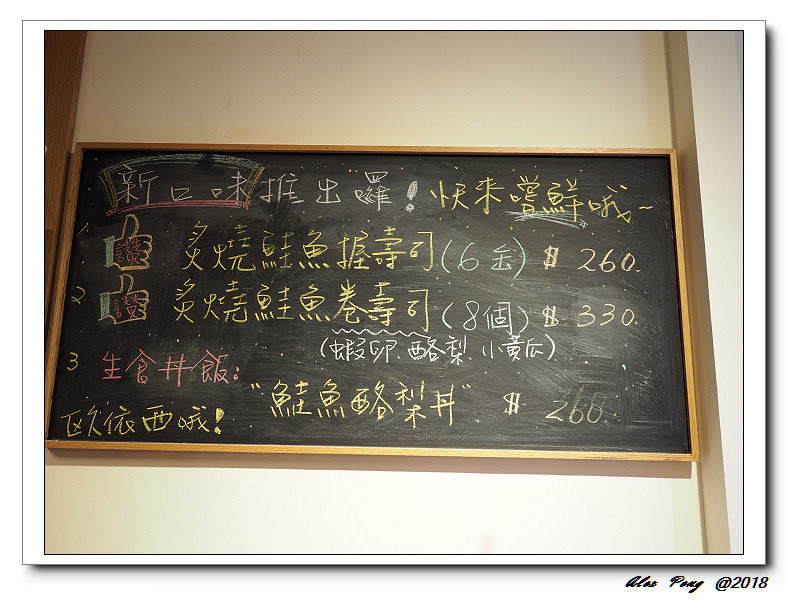 新口味推出囉！快來嚐鮮哦~
1. 讚 炙燒鮭魚握壽司(6金) $ 260.
2 讚 炙燒鮭魚卷壽司(8個) $ 330.
(蝦卵.酪梨.小黃瓜)
3 生食丼飯：
歐依西哦！ "鮭魚酪梨丼" $ 260.
Alex Peng @2018